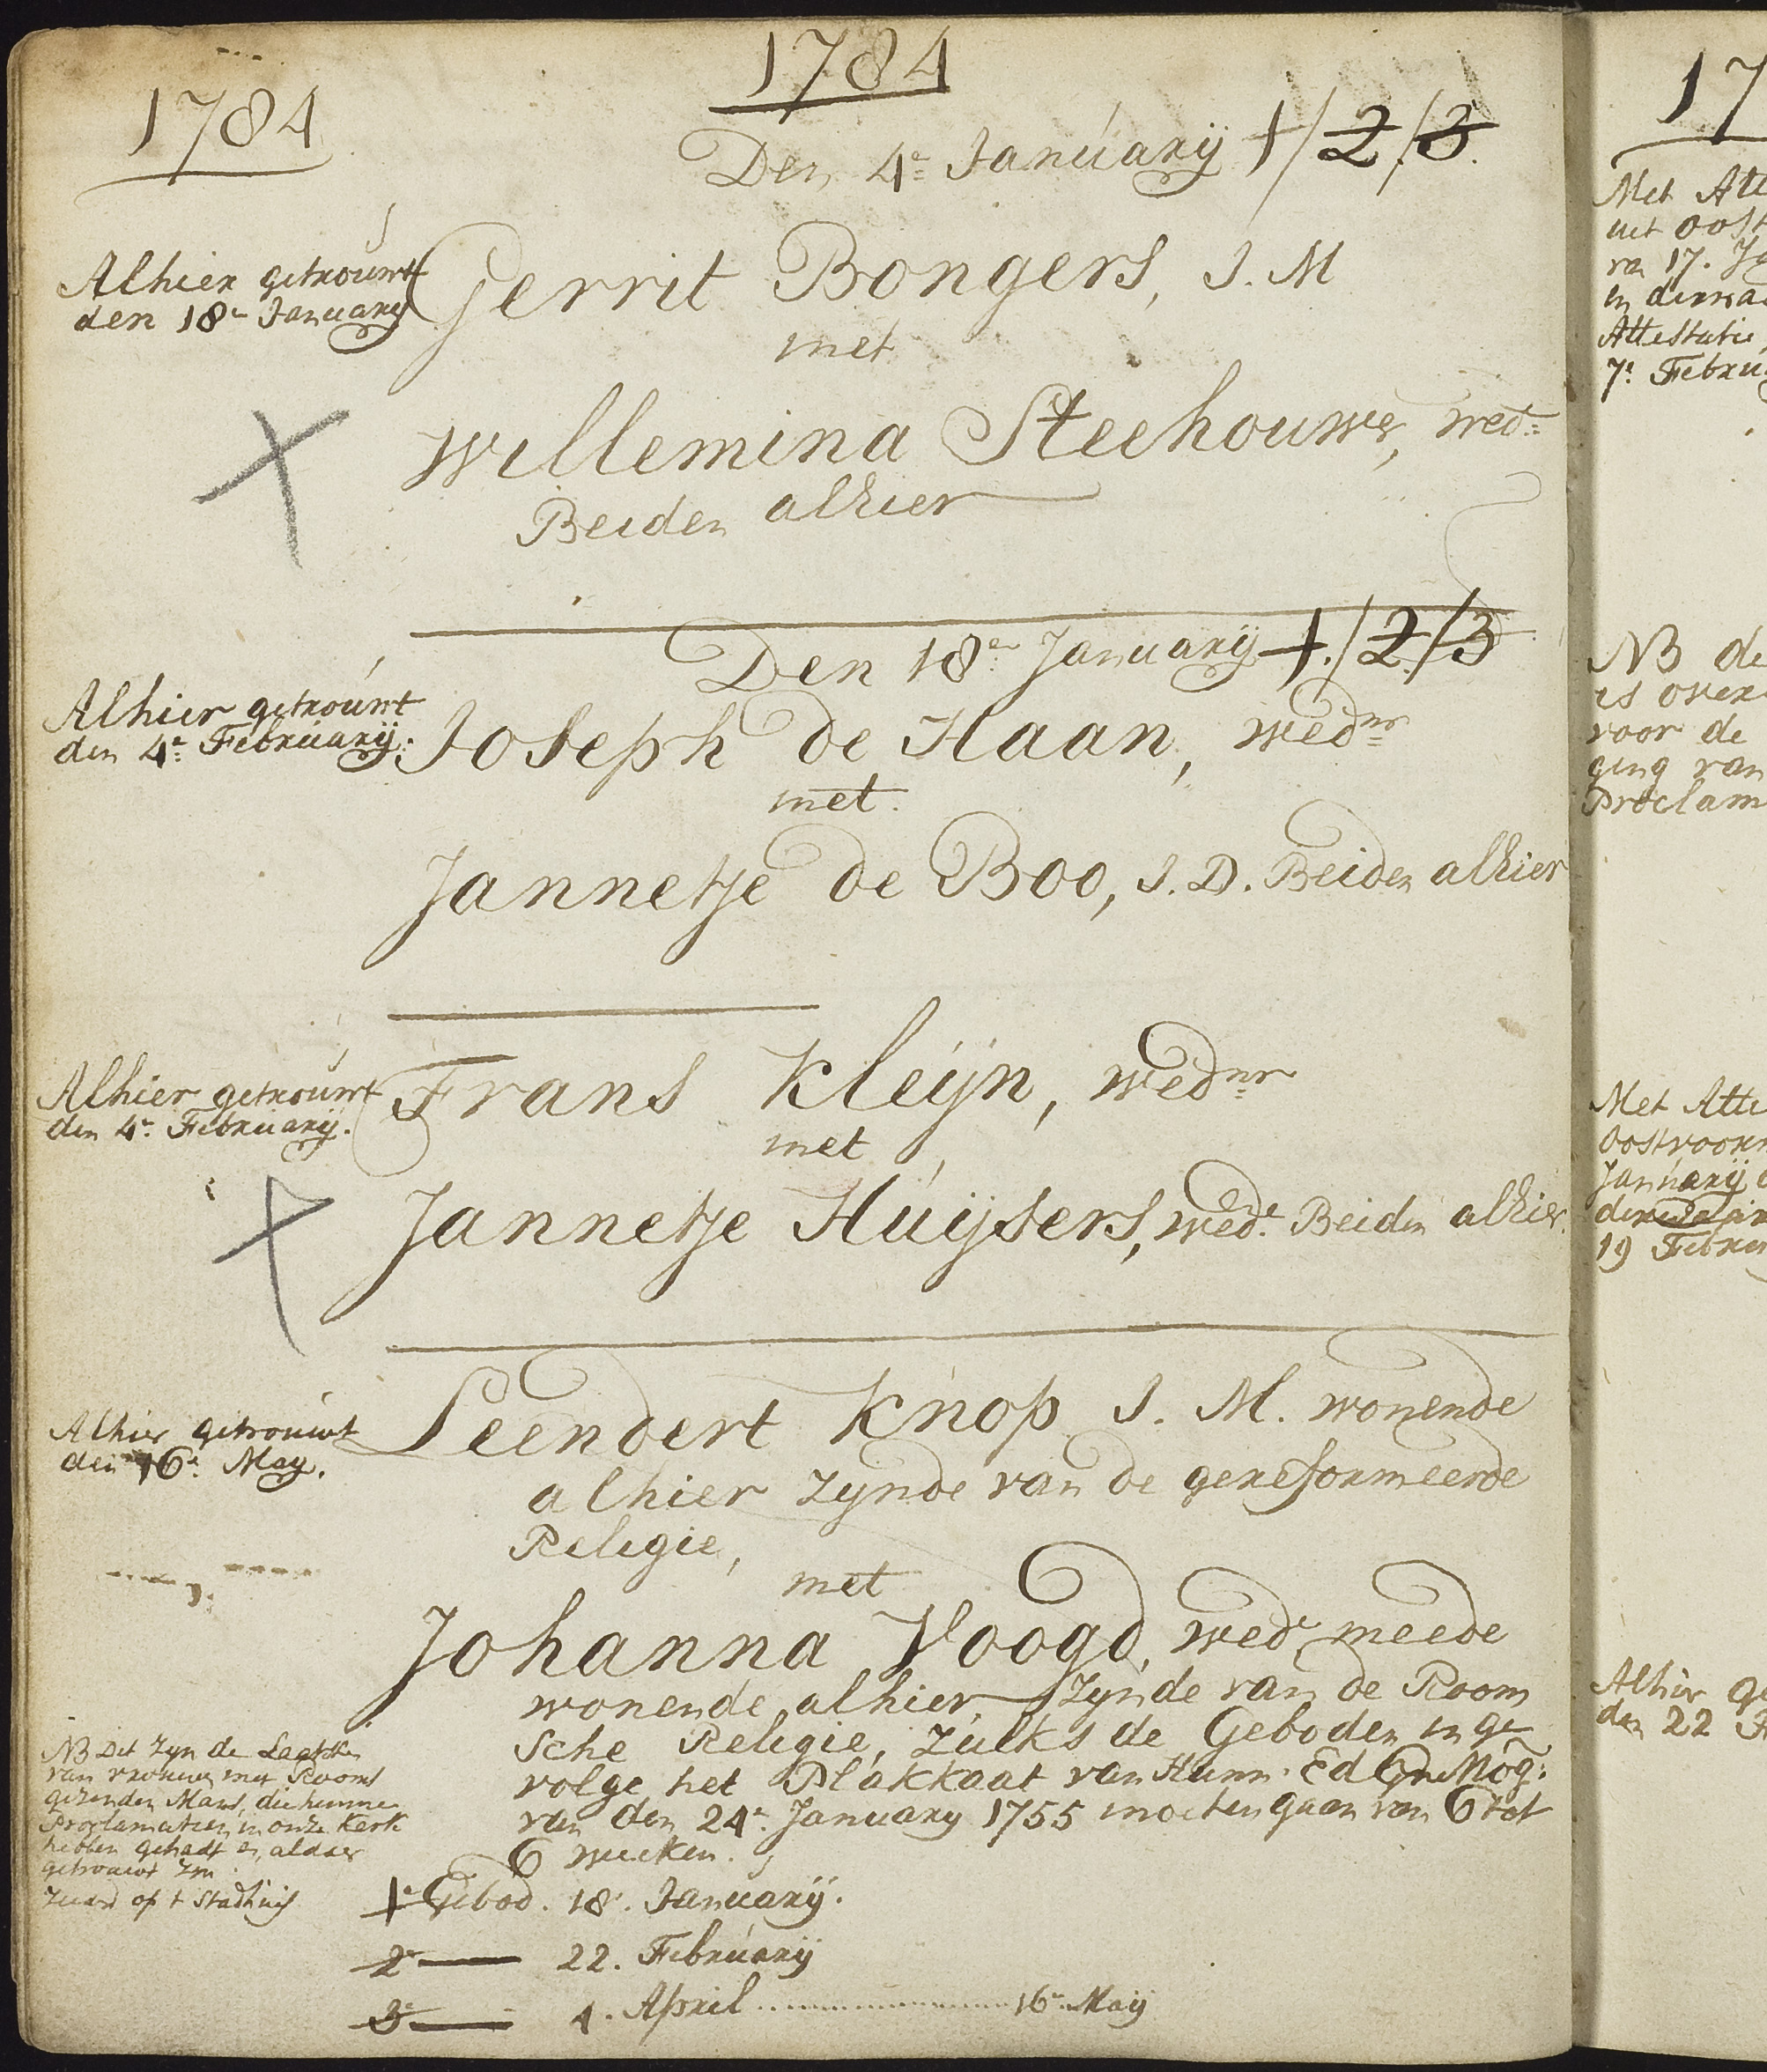 1784
1784
Den 4e January 1/2/3.
Alhier getrouwt
den 18e January
Gerrit Bongers, J. M
met
Willemina Steehouwer, wed=
Beiden alhier
Den 18e January 1./2/3
Alhier getrouwt
den 4e February.
Joseph de Haan, wednr
met
Jannetje de Boo, J. D. Beiden alhier
Alhier getrouwt
den 4e February.
Frans Kleijn, wednr
met
Jannetje Huijsers, wede. Beiden alhier.
Alhier getrouwt
den 16e May.
Leendert Knop J. M. wonende
alhier zynde van de gereformeerde
Religie,
met
Johanna Voogd, wede meede
wonende alhier, zynde van de Room
sche Religie, zulks de Geboden in ge
volge het Plakkaat van Hunn. Ed Gr. Mog:
van den 24e January 1755 moeten gaan van 6 tot
6 weeken.
NB Dit zyn de Laatste
van vrouwen met Rooms
gezinden Mans, die hunne
Proclamatien in onze Kerk
hebben gehadt en aldaar
getrouwt zyn
op t Stadhuis
1e Gebod. 18. January.
2e — 22. February
3e — 4. April ........ 16e May
17
Met Att
uit Oost
va 17. Ja
en
Attestatie
7e Febru
NB de
is over
voor de
ging van
Proclam
Met Atte
Oostvoorn
January
19 Febru
Alhier ge
den 22 F